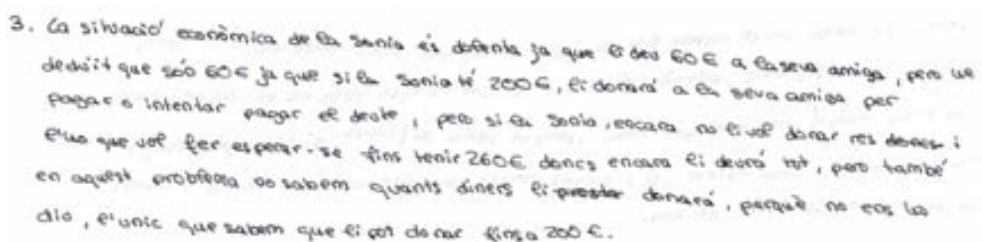 3. La situació econòmica de la Sonia és dolenta ja que li deu 60€ a la seva amiga, però he
deduit que són 60€ ja que si la Sonia té 200€, li donarà a la seva amiga per
pagar o intentar pagar el deute, però si la Sonia, encara no li vol donar res doncs i
que vol fer esperar-se fins tenir 260€ doncs encara li deurà tot, però també
en aquest problema no sabem quants diners li prestar donarà, perquè no ens ho
diu, l'unic que sabem que li pot donar fins a 200€.